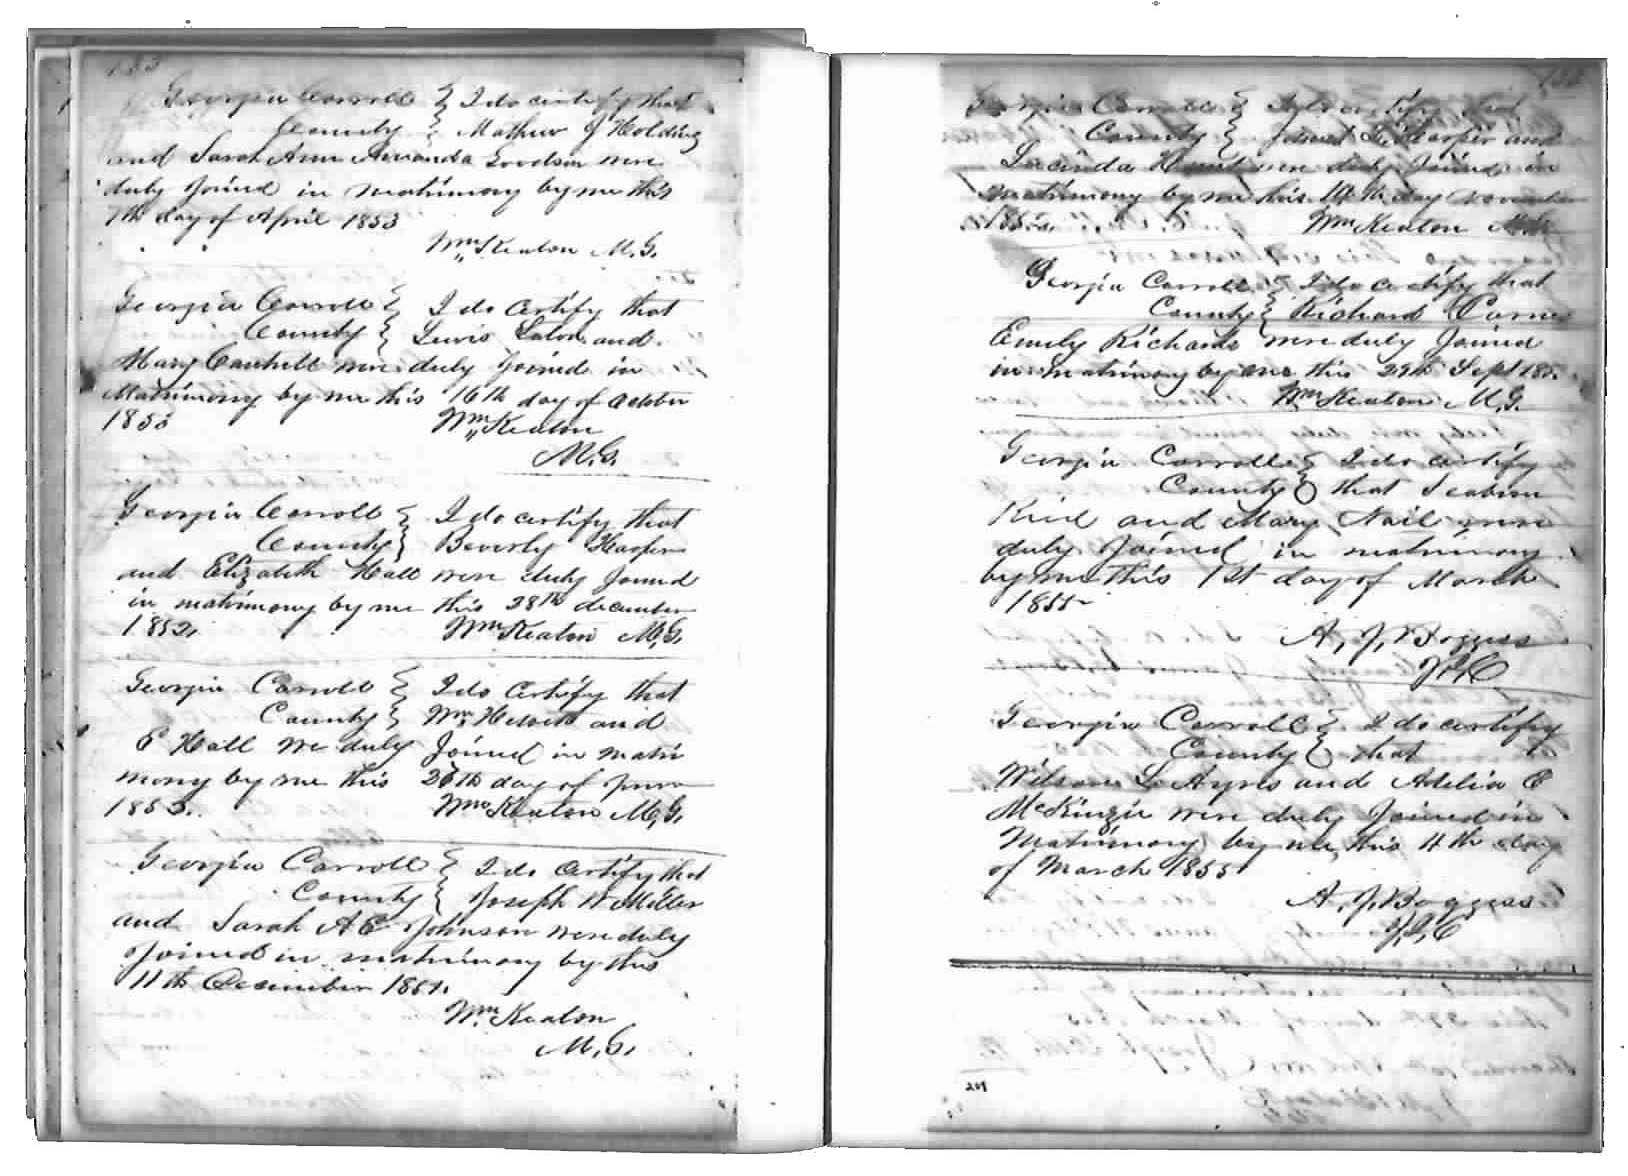 Georgia Carroll } I do certify that
County } Mathew J Holding
and Sarah Ann Amanda Goodson were
duly joined in matrimony by me this
7th day of April 1853
Wm Keaton M.G.
Georgia Carroll } I do certify that
County } Lewis and
Mary Cantrell were duly joined in
Matrimony by me this 16th day of October
1853
Wm Keaton
M.G.
Georgia Carroll } I do certify that
County } Beverly Harper
and Elizabeth Hall were duly joined
in matrimony by me this 28th december
1852.
Wm Keaton M.G.
Georgia Carroll } I do certify that
County } Wm and
E Hall we duly joined in matri
mony by me this 26th day of
1853.
Wm Keaton M.G.
Georgia Carroll } I do certify that
County } Joseph W Miller
and Sarah A E Johnson were duly
joined in matrimony by this
11th December 1851.
Wm Keaton
M.G.
Georgia Carroll } I do certify that
County } Harper and
Lucinda were duly joined in
matrimony by me this 14th day November
Wm Keaton M.G.
Georgia Carroll } I do certify that
County } Richard
Emily Richards were duly joined
in matrimony by me this 29th Sept
Wm Keaton M.G.
Georgia Carroll } I do certify
County } that Seaborn
and Mary Nail were
duly joined in matrimony
by me this 1st day of March
1855
A. J. Boggess
J.I.C
Georgia Carroll } I do certify
County } that
Wilson L. Ayres and Adelia E
McKinzie were duly joined in
Matrimony by me this 11th day
of March 1855
A. J. Boggess
J.I.C
202